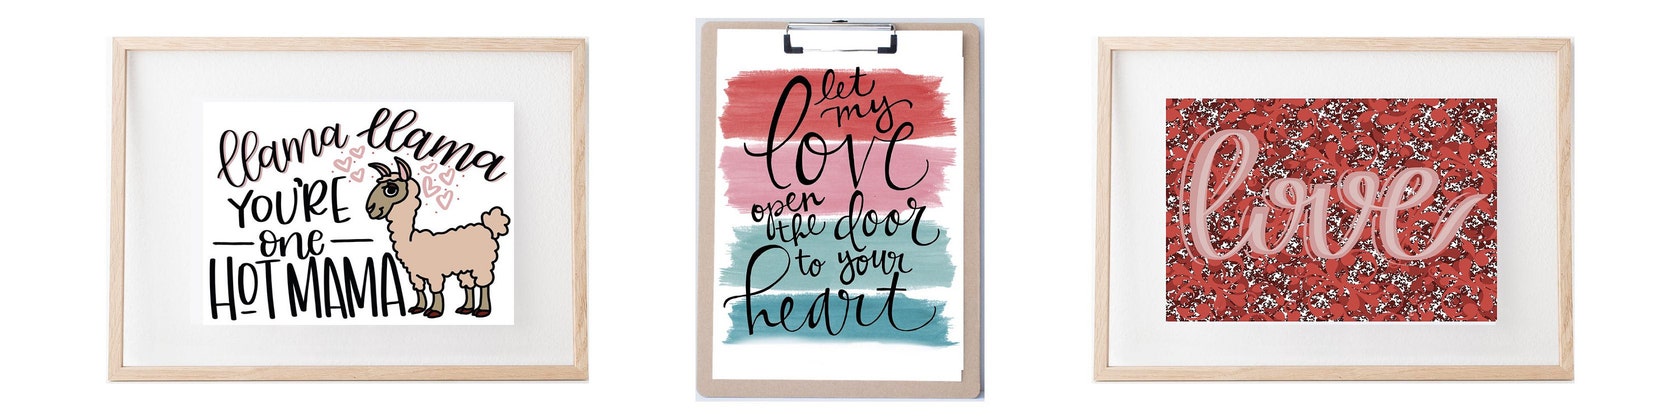 llama llama
YOU'RE
one
HOT MAMA
let
my
love
open
the door
to your
heart
love